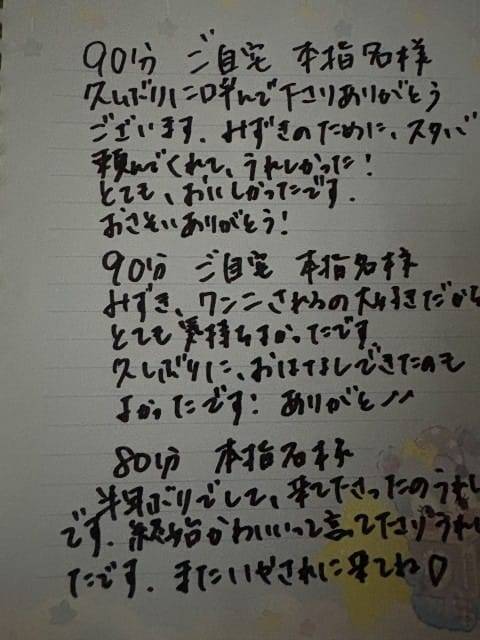 90分 ご自宅 本指名様
久しぶりに呼んで下さりありがとう
ございます. みずきのために、スタバ
頼んでくれて、うれしかった!
とても、おいしかったです.
おさそいありがとう!
90分 ご自宅 本指名様
みずき、ワンニされるの大好きだから
とても気持ちよかったです.
久しぶりに、おはなしできたのも
よかったです! ありがと
80分 本指名様
半年ぶりでして、来て下さったのうれし
です. かわいいって言って下さりうれし
たです. またいやされに来てね♡